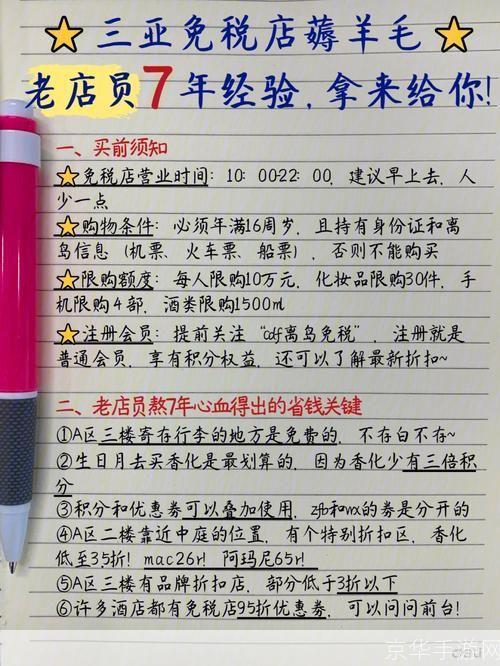 三亚免税店薅羊毛
老店员7年经验,拿来给你!
一、买前须知
免税店营业时间:10:00-22:00,建议早上去,人
少一点
购物条件:必须年满16周岁,且持有身份证和离
岛信息(机票、火车票、船票),否则不能购买
限购额度:每人限购10万元,化妆品限购30件,手
机限购4部,酒类限购1500ml
注册会员:提前关注“cdf离岛免税”,注册就是
普通会员,享有积分权益,还可以了解最新折扣~
二、老店员熬7年心血得出的省钱关键
①A区三楼寄存行李的地方是免费的,不存白不存~
②生日月去买香化是最划算的,因为香化少有三倍积
分
③积分和优惠券可以叠加使用,zfb和wx的券是分开的
④A区二楼靠近中庭的位置,有个特别折扣区,香化
低至35折!mac26r!阿玛尼65r!
⑤A区三楼有品牌折扣店,部分低于3折以下
⑥许多酒店都有免税店95折优惠券,可以问问前台!
京华手游网